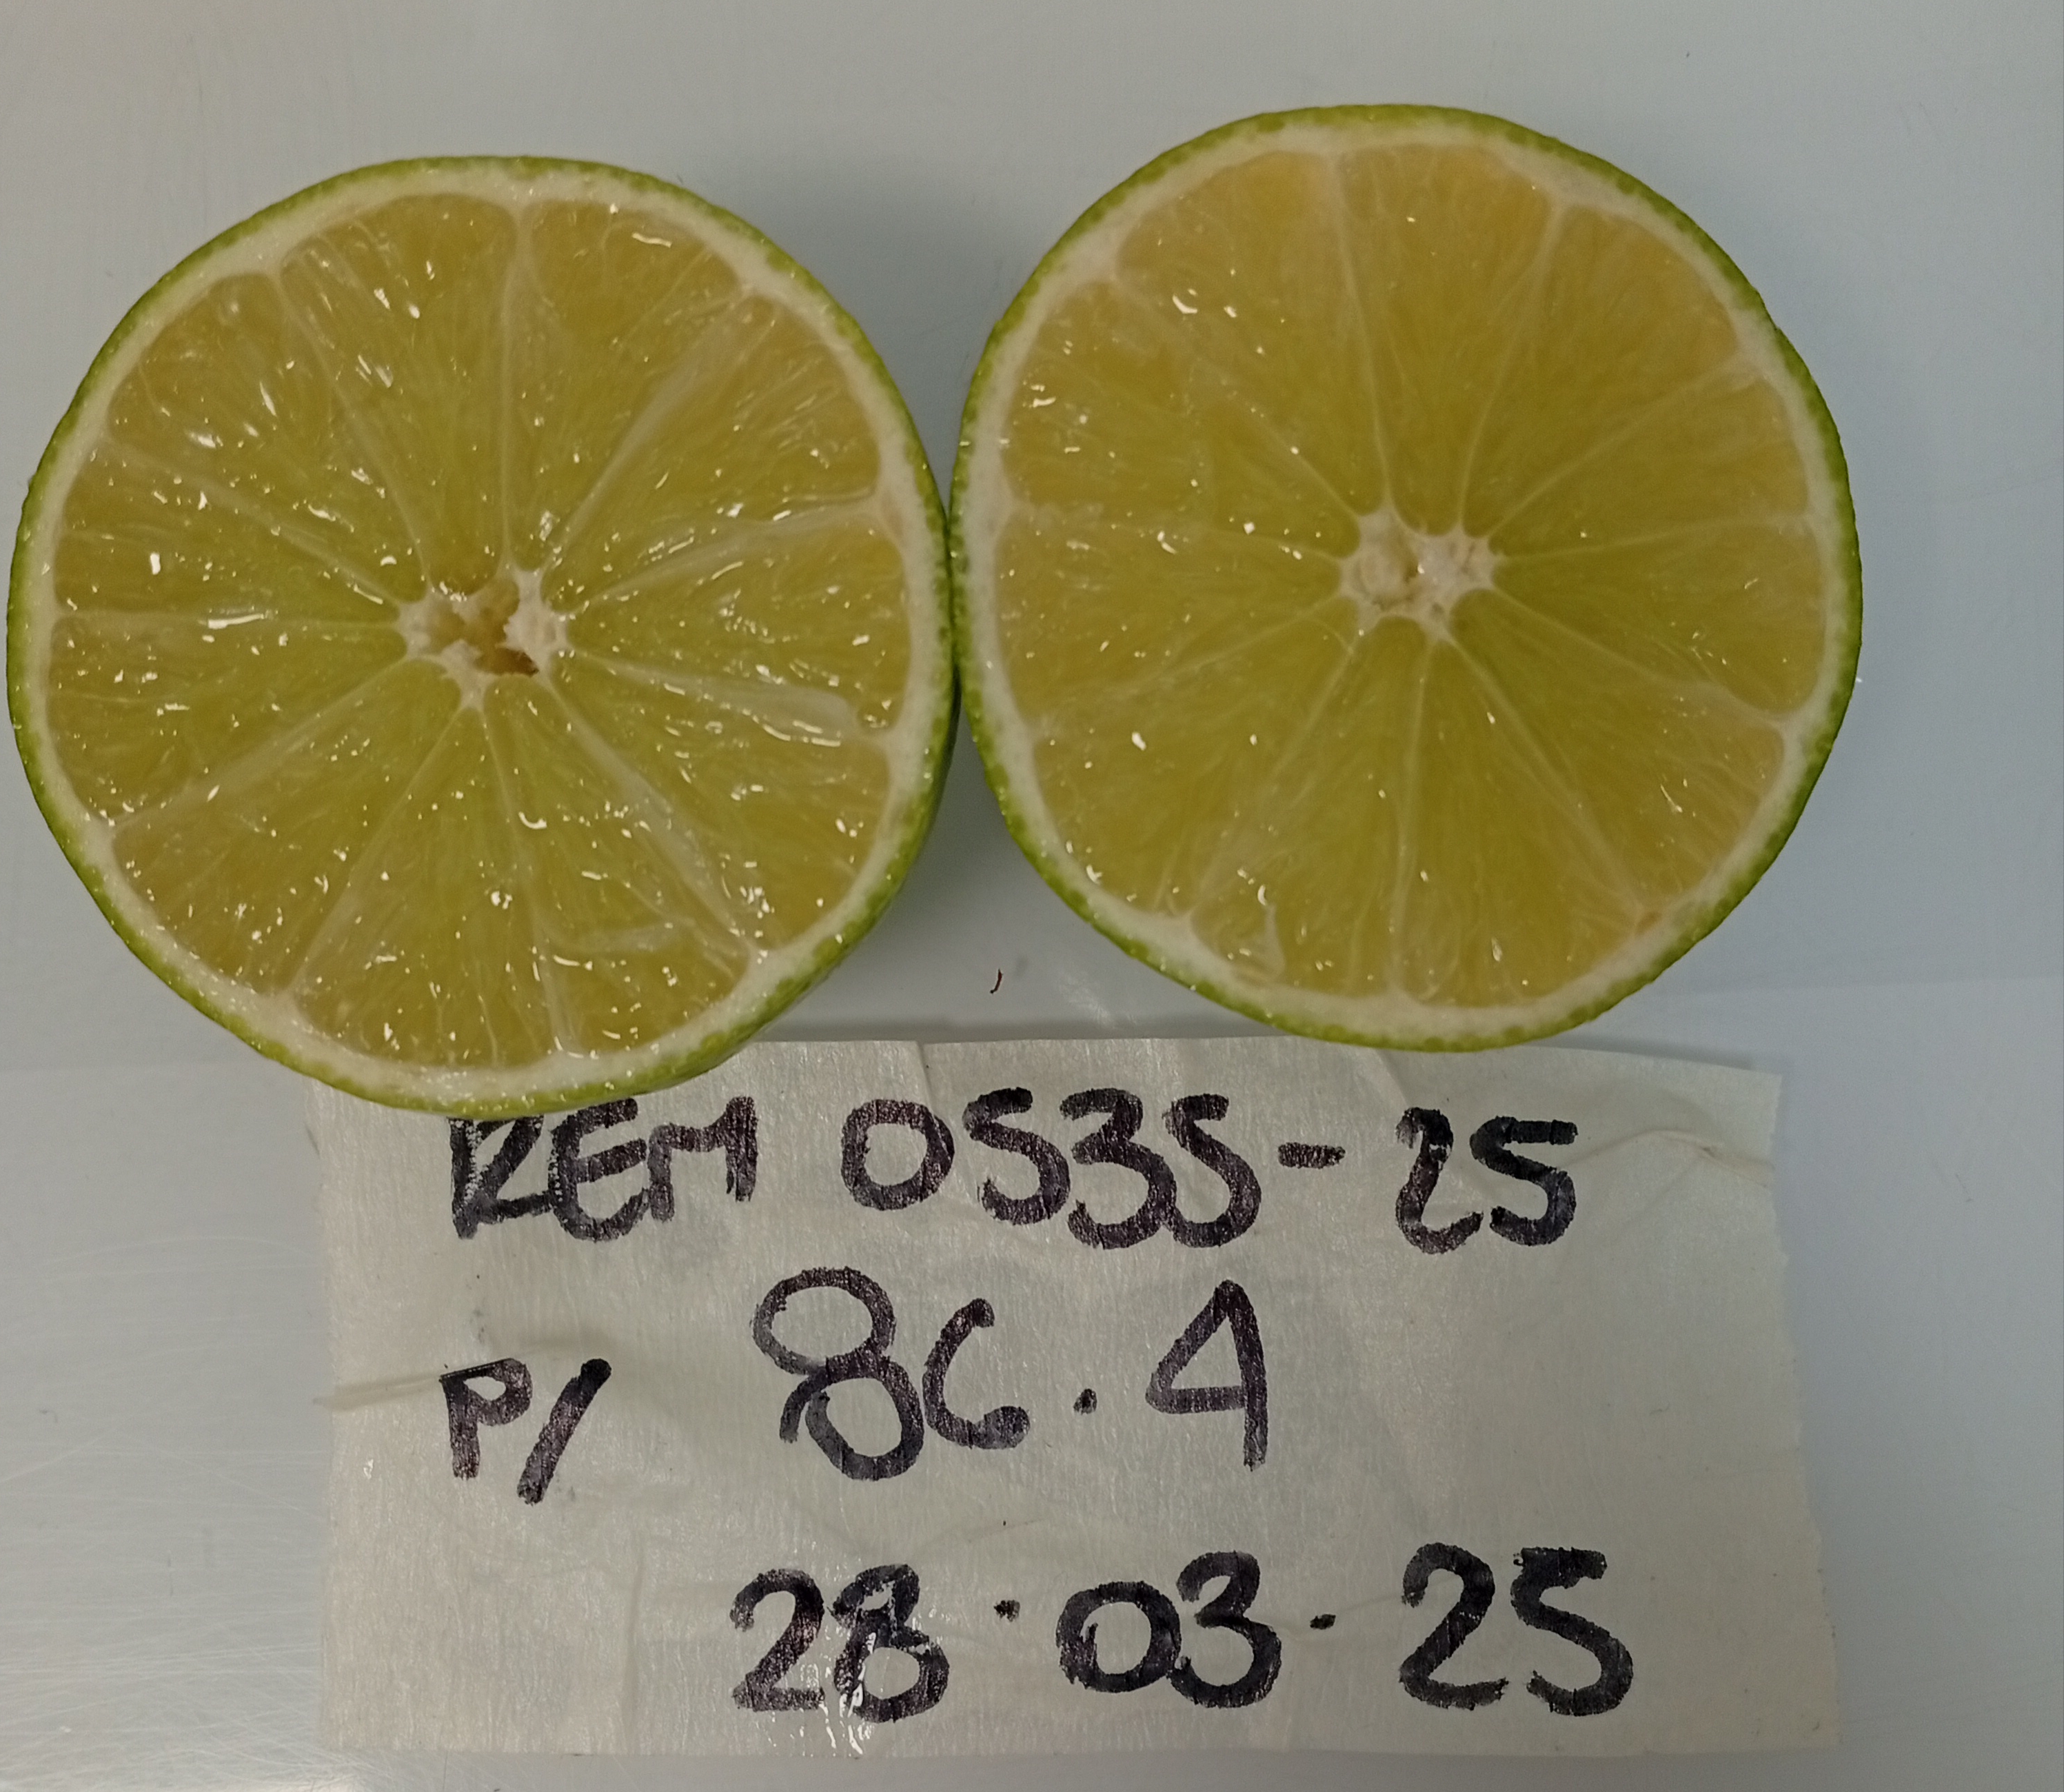 REM 0535-25
P/ 86.4
28.03.25